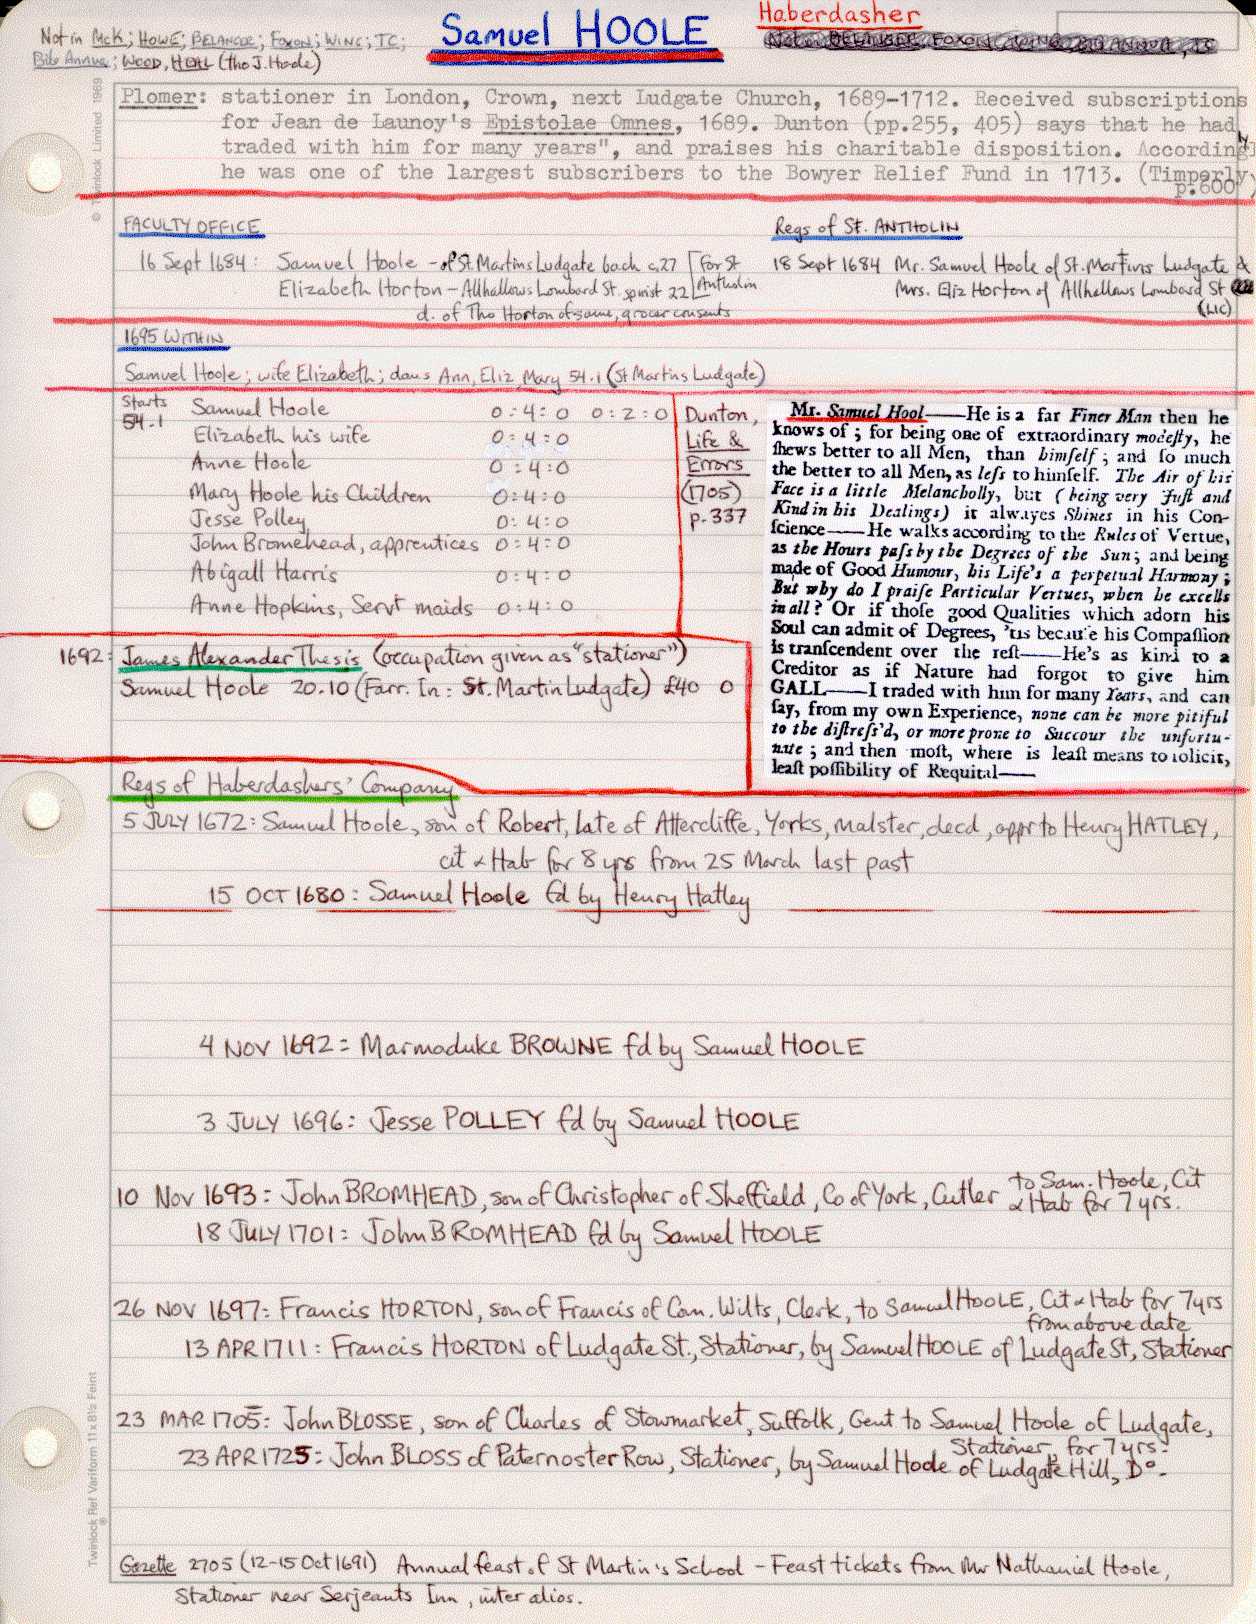 Samuel HOOLE
Haberdasher
Not in McK; HOWE; BELANGER; FOXON; WING; TC;
Bib Annua; WOOD, HEAL (tho J. Hoole)
Not in BELANGER, FOXON, WING, BIB ANNUA, TC
© Twinlock Limited 1969
Plomer: stationer in London, Crown, next Ludgate Church, 1689-1712. Received subscriptions
for Jean de Launoy's Epistolae Omnes, 1689. Dunton (pp.255, 405) says that he had
traded with him for many years", and praises his charitable disposition. According
he was one of the largest subscribers to the Bowyer Relief Fund in 1713. (Timperly,
p.600
FACULTY OFFICE
16 Sept 1684: Samuel Hoole - of St. Martins Ludgate bach c.27 [For St
Elizabeth Horton - Allhallows Lombard St. spinst 22 Antholin
d. of Tho Horton of same, grocer consents
Regs of St. ANTHOLIN
18 Sept 1684 Mr. Samuel Hoole of St. Martins Ludgate &
Mrs. Eliz Horton of Allhallows Lombard St
(LIC)
1695 WITHIN
Samuel Hoole; wife Elizabeth; daus Ann, Eliz, Mary 54.1 (St Martins Ludgate)
Starts
54.1
Samuel Hoole 0:4:0 0:2:0
Elizabeth his wife 0:4:0
Anne Hoole 0:4:0
Mary Hoole his Children 0:4:0
Jesse Polley 0:4:0
John Bromehead, apprentices 0:4:0
Abigall Harris 0:4:0
Anne Hopkins, Servt maids 0:4:0
Dunton,
Life &
Errors
(1705)
p.337
Mr. Samuel Hool——He is a far Finer Man then he
knows of; for being one of extraordinary modesty, he
shews better to all Men, than himself; and so much
the better to all Men, as less to himself. The Air of his
Face is a little Melancholly, but (being very Just and
Kind in his Dealings) it alwayes Shines in his Con-
science——He walks according to the Rules of Vertue,
as the Hours pass by the Degrees of the Sun; and being
made of Good Humour, his Life's a perpetual Harmony;
But why do I praise Particular Vertues, when he excells
in all? Or if those good Qualities which adorn his
Soul can admit of Degrees, 'tis because his Compassion
is transcendent over the rest——He's as kind to a
Creditor as if Nature had forgot to give him
GALL——I traded with him for many Years, and can
say, from my own Experience, none can be more pitiful
to the distress'd, or more prone to Succour the unfortu-
nate; and then most, where is least means to solicit,
least possibility of Requital——
1692: James Alexander Thesis (occupation given as "stationer")
Samuel Hoole 20.10 (Farr. In: St. Martin Ludgate) £40 0
Regs of Haberdashers' Company
5 JULY 1672: Samuel Hoole, son of Robert, late of Attercliffe, Yorks, malster, decd, appr to Henry HATLEY,
cit & Hab for 8 yrs from 25 March last past
15 OCT 1680: Samuel Hoole fd by Henry Hatley
4 NOV 1692: Marmaduke BROWNE fd by Samuel HOOLE
3 JULY 1696: Jesse POLLEY fd by Samuel HOOLE
10 Nov 1693: John BROMHEAD, son of Christopher of Sheffield, Co of York, Cutler to Sam. Hoole, Cit
& Hab for 7 yrs.
18 JULY 1701: John BROMHEAD fd by Samuel HOOLE
26 NOV 1697: Francis HORTON, son of Francis of Com. Wilts, Clerk, to Samuel HOOLE, Cit & Hab for 7 yrs
from above date
13 APR 1711: Francis HORTON of Ludgate St., Stationer, by Samuel HOOLE of Ludgate St, Stationer
23 MAR 1705: John BLOSSE, son of Charles of Stowmarket, Suffolk, Gent to Samuel Hoole of Ludgate,
Stationer, for 7 yrs.
23 APR 1725: John BLOSS of Paternoster Row, Stationer, by Samuel Hoole of Ludgate Hill, Do.
Gazette 2705 (12-15 Oct 1691) Annual feast of St Martin's School - Feast tickets from Mr Nathaniel Hoole,
Stationer near Serjeants Inn, inter alios.
Twinlock Ref Variform 11 x 8½ Feint